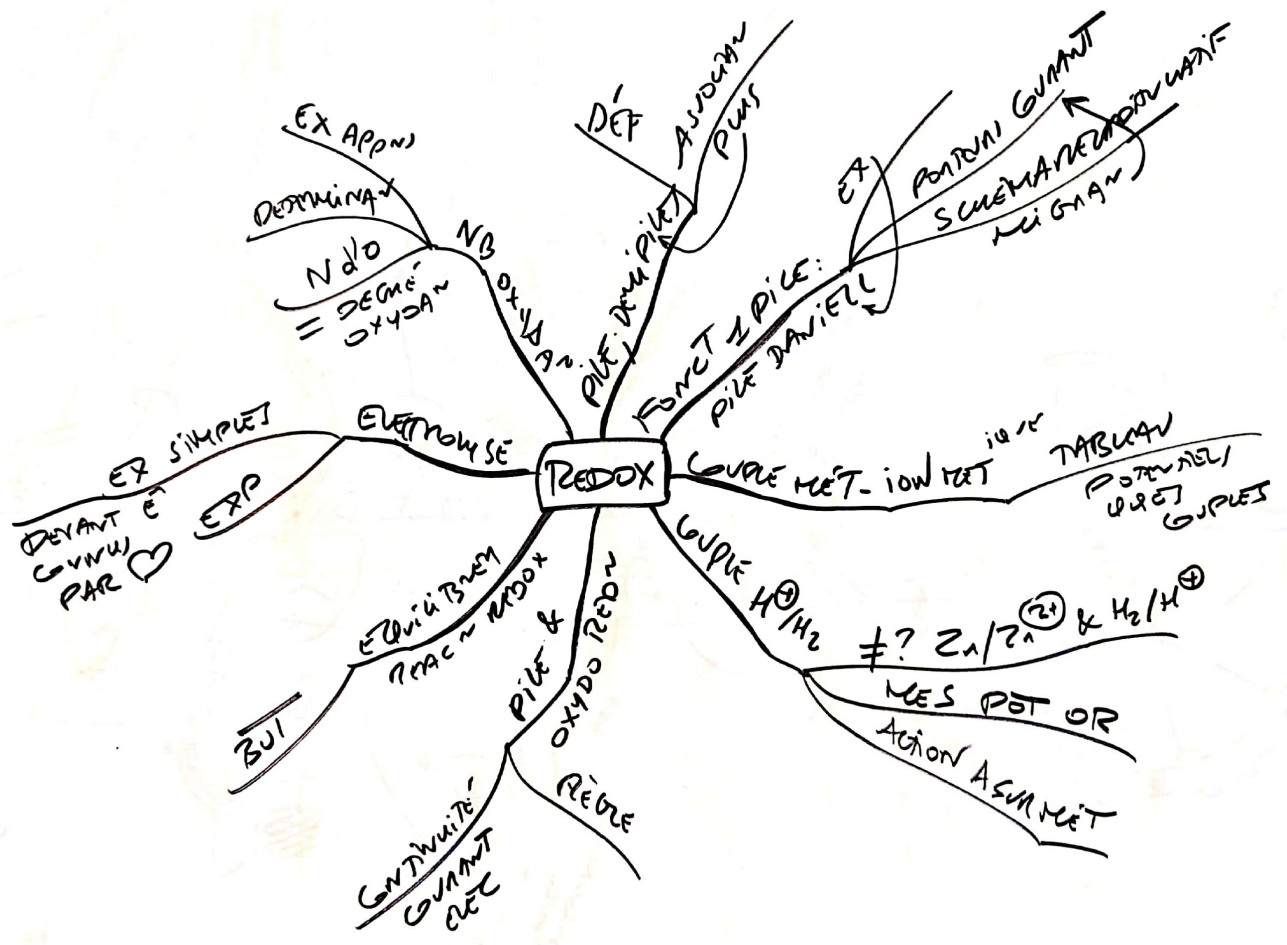 REDOX
PILE: DEMI PILES
DÉF
ASSOCIAN
PLUS
FONCT 1 PILE:
PILE DANIELL
EX
PORTEURS COURANT
MIGRAN
COUPLE MÉT - ION MET
TABLEAU
POTENTIELS
QQES
COUPLES
COUPLE H⊕/H2
≠? Zn/Zn2+ & H2/H⊕
MES POT OR
ACTION A SUR MÉT
PILE &
OXYDO REDN
RÈGLE
CONTINUITÉ
COURANT
ELEC
EQUILIBREN
REAC~ REDOX
BUT
ELETROLYSE
EX SIMPLES
DEVANT Ê
CONNUS
PAR ♡
EXP
NB OXYDAN
EX APPNS
DETERMINAN
N d'O
= DEGRÉ
OXYDAN